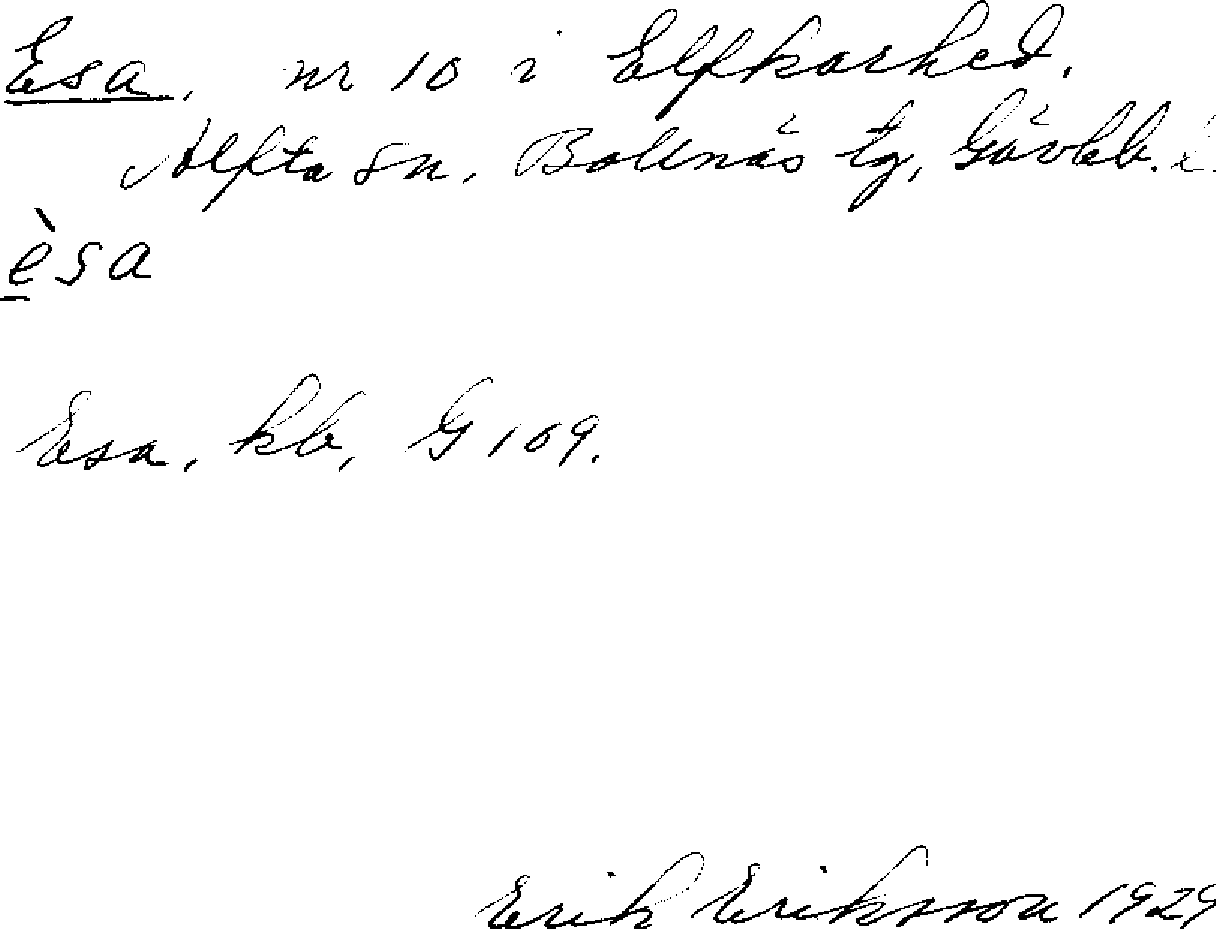 Esa. nr 10 i Elfkarhed.
Alfta sn. Bollnäs tg, Gävleb. l.
èsa
Esa. kb, G 109.
Erik Eriksson 1929